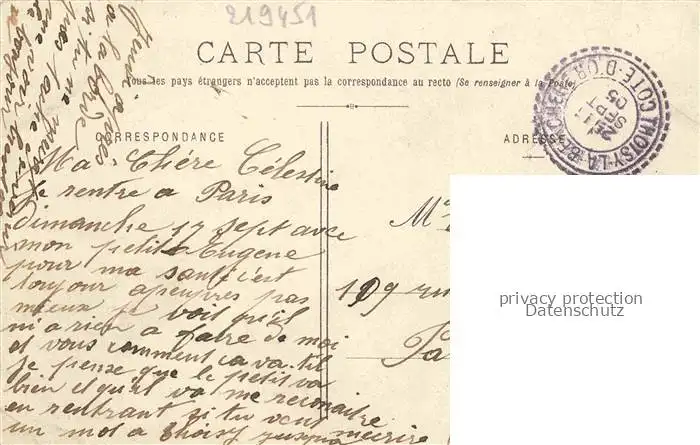 219451
CARTE POSTALE
Tous les pays étrangers n'acceptent pas la correspondance au recto (Se renseigner à la Poste)
CORRESPONDANCE
ADRESSE
THOISY-LA-BERCHÈRE
COTE-D'OR
Ma Chére Célestine
Je rentre a Paris
dimanche 17 sept avec
mon petit Eugene
pour ma santé c'est
toujour apeupres pas
mieux je voit qu'il
ni a rien a faire de moi
et vous comment ca va-til
je pense que le petit va
bien et qu'il va me reconaitre
en rentrant si tu veut mécrire
un mot a Thoisy jusqua
109 rue
Pa
privacy protection
Datenschutz